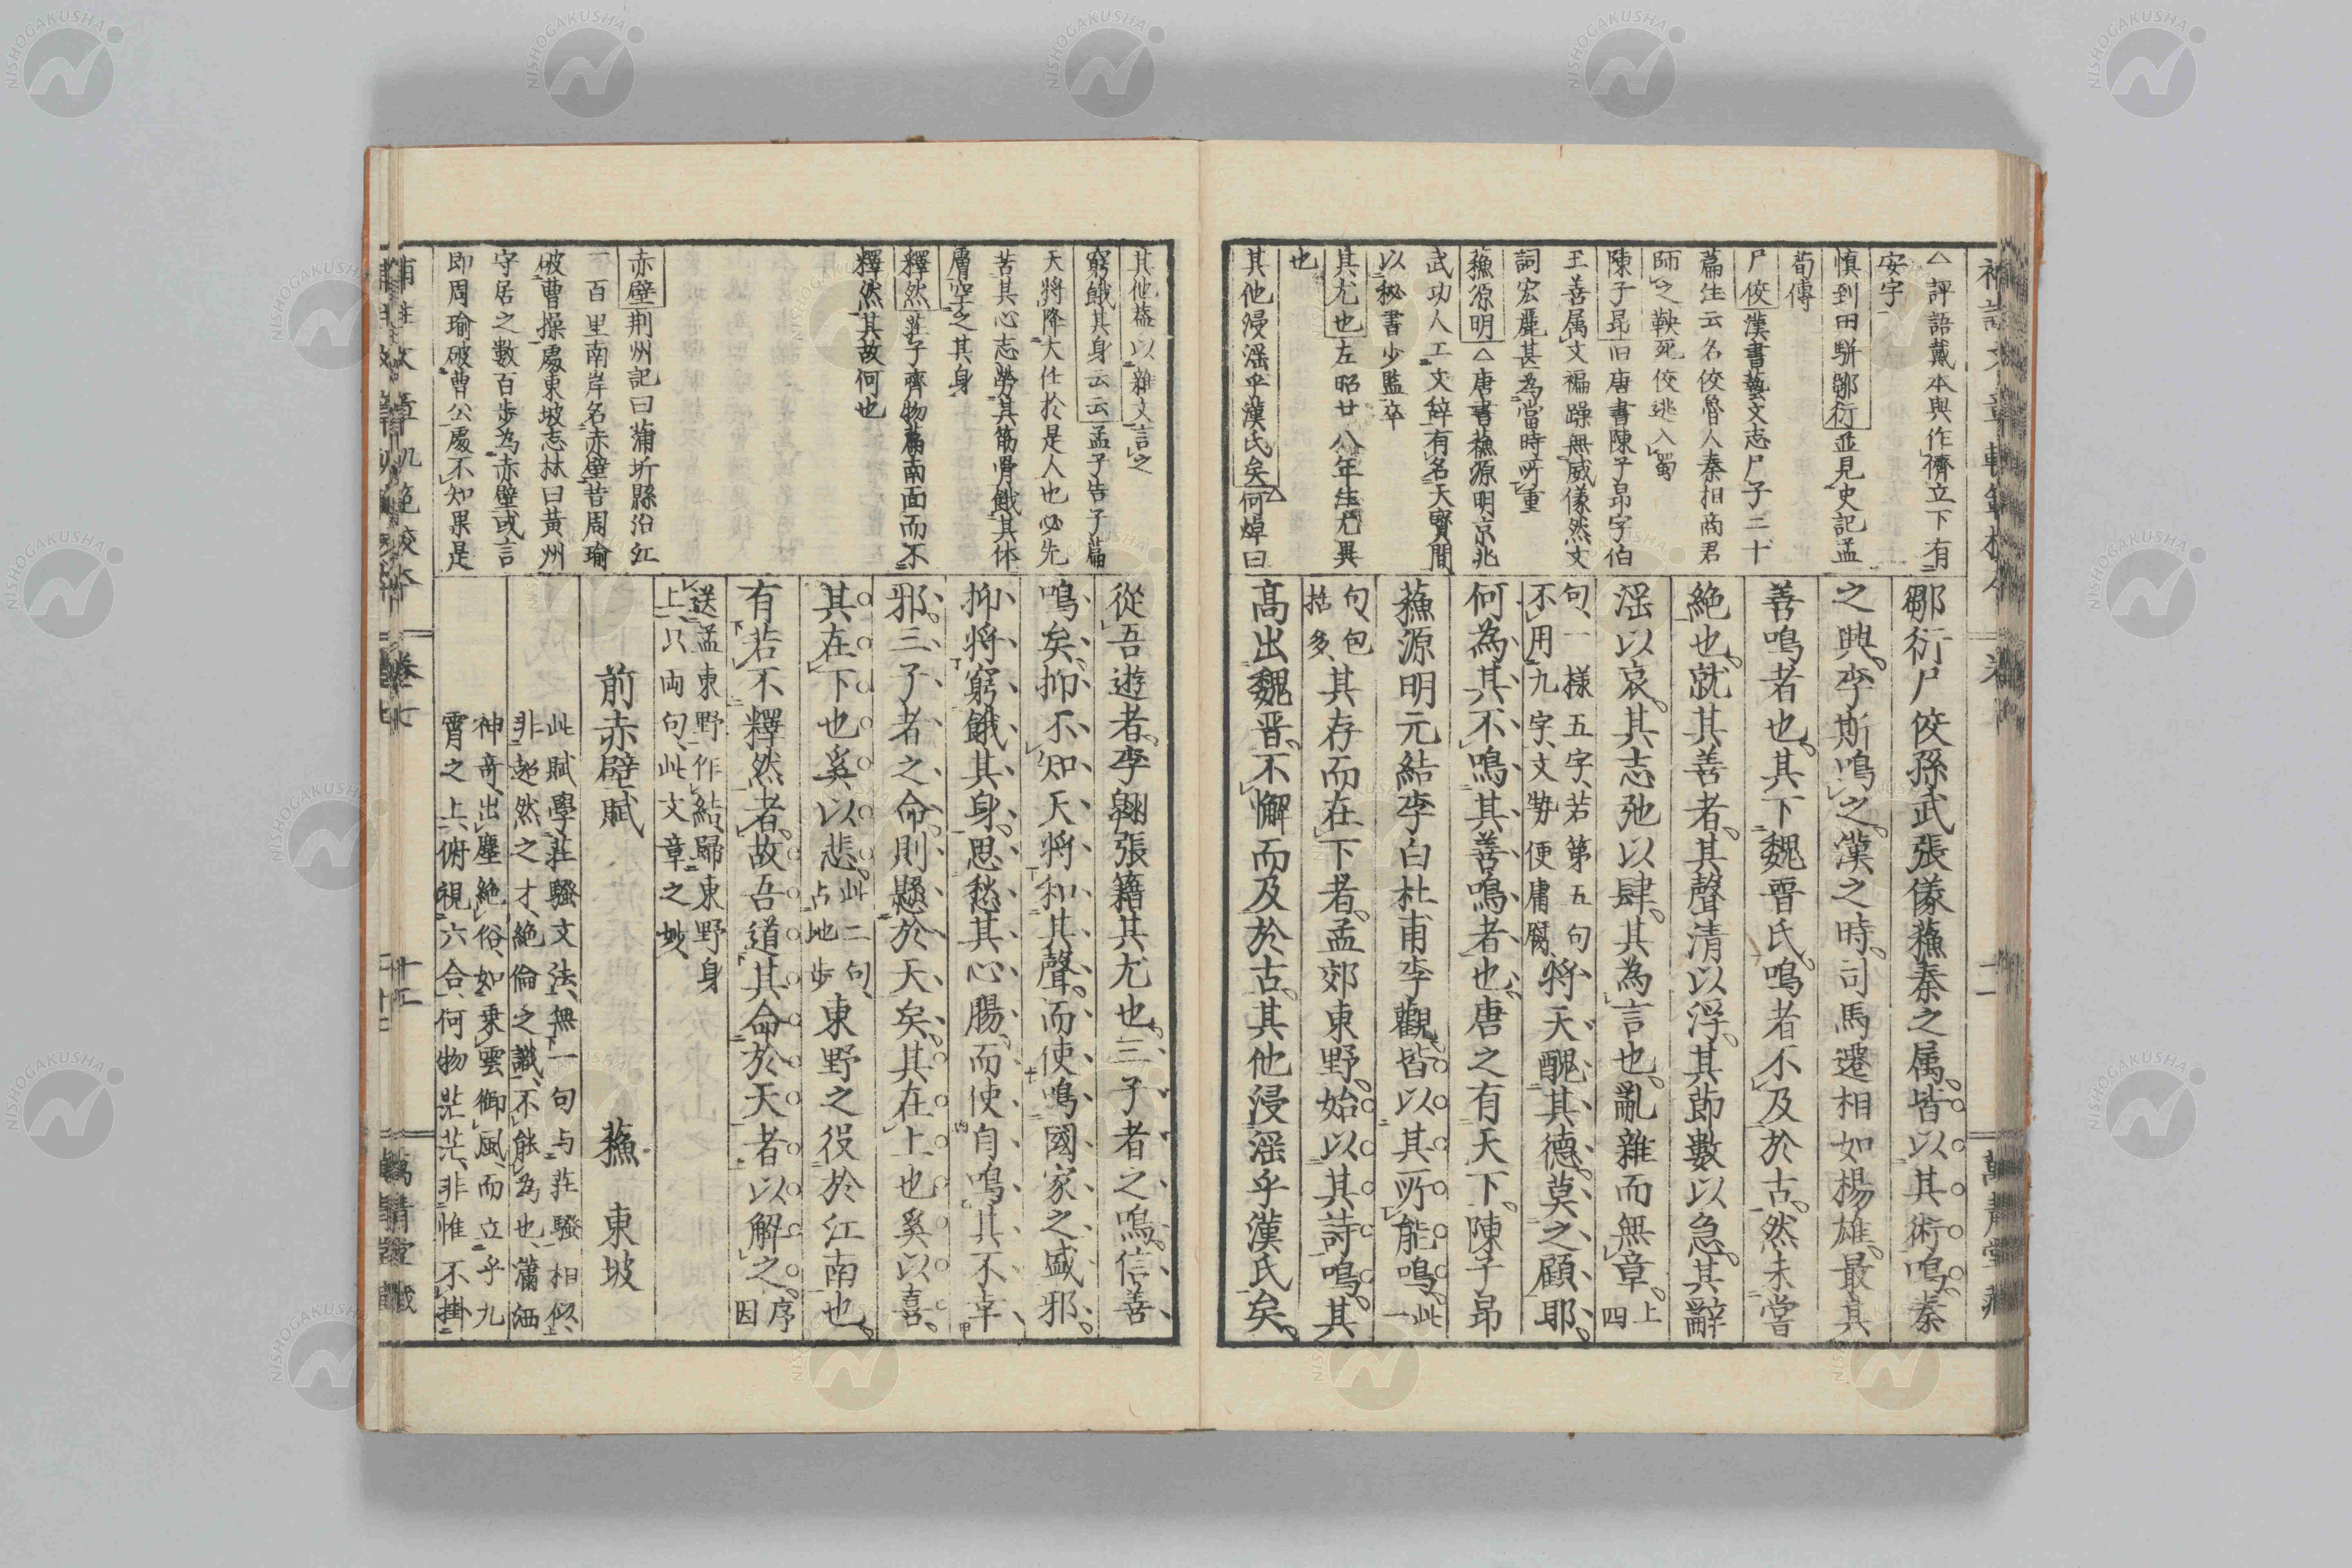 △評語戴本與作儕立下有
安字
慎到田駢鄒衍並見史記孟
荀傳
尸佼漢書藝文志尸子二十
篇注云名佼魯人秦相商君
師之鞅死佼逃入蜀
陳子昂旧唐書陳子昂字伯
王善属文褊躁無威儀然文
詞宏麗甚為當時所重
蘓源明△唐書蘓源明京兆
武功人工文辭有名天寶間
以秘書少監卒
其尤也左昭廿八年生尤異
也
其他浸淫乎漢氏矣△何焯曰
鄒衍尸佼孫武張儀蘓秦之属皆以其術鳴秦
之興李斯鳴之漢之時司馬遷相如楊雄最其
善鳴者也其下魏晋氏鳴者不及於古然未嘗
絶也就其善者其聲清以浮其節數以急其辭
淫以哀其志弛以肆其為言也亂雜而無章上四
句一樣五字若第五句不用九字文勢便庸腐將天醜其德莫之顧耶
何為其不鳴其善鳴者也唐之有天下陳子昂
蘓源明元結李白杜甫李觀皆以其所能鳴此一
句包括多其存而在下者孟郊東野始以其詩鳴其
高出魏晋不懈而及於古其他浸淫乎漢氏矣
其他葢以雜文言之
窮餓其身云云孟子告子篇
天將降大任於是人也必先
苦其心志勞其筋骨餓其体
膚空乏其身
釋然莊子齊物篇南面而不
釋然其故何也
赤壁荆州記曰蒲圻縣沿江
一百里南岸名赤壁昔周瑜
破曹操處東坡志林曰黃州
守居之數百步為赤壁或言
即周瑜破曹公處不知果是
從吾遊者李翺張籍其尤也三子者之鳴信善
鳴矣抑不知天將和其聲而使鳴國家之盛邪
抑將窮餓其身思愁其心腸而使自鳴其不幸
邪三子者之命則懸於天矣其在上也奚以喜
其在下也奚以悲此二句占地步東野之役於江南也
有若不釋然者故吾道其命於天者以解之序因
送孟東野作結歸東野身
上只両句此文章之妙
前赤壁賦　蘓東坡
此賦學莊騷文法無一句与莊騷相似
非超然之才絶倫之識不能為也瀟洒
神奇出塵絶俗如乗雲御風而立乎九
霄之上俯視六合何物茫茫非惟不掛
卷七